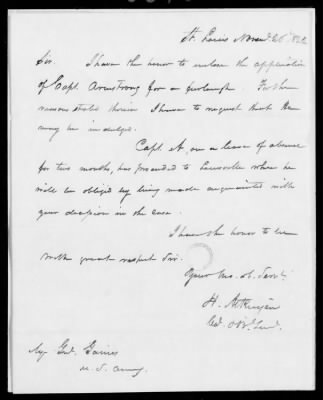 St. Louis Novem 26th
Sir.
I have the honor to enclose the application
of Capt. Armstrong for a furlough. For the
reasons stated therein I have to request that he
may be indulged.
Capt. A. on a leave of absence
for two months, has proceeded to Louisville where he
will be obliged by being made acquainted with
your decision in the case.
I have the honor to be
with great respect Sir.
Your Mo. Ob. Servt.
H. Atkinson
Maj. Genl. Gaines
U. S. Army